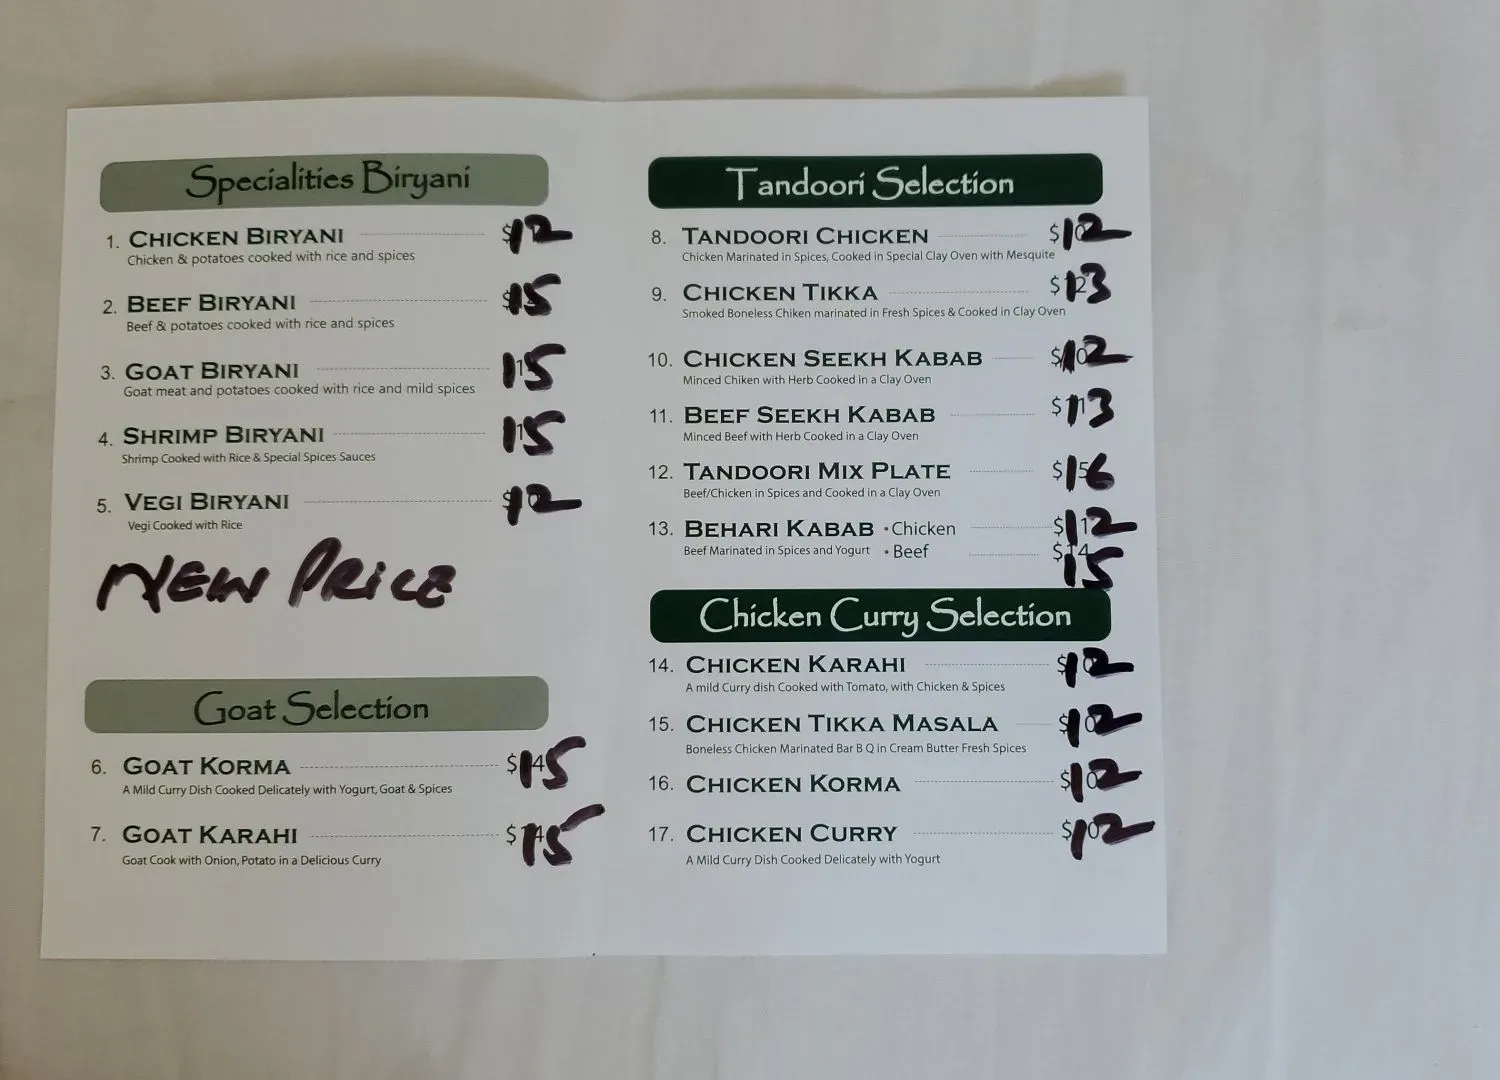 Specialities Biryani
1. CHICKEN BIRYANI $12
Chicken & potatoes cooked with rice and spices
2. BEEF BIRYANI $15
Beef & potatoes cooked with rice and spices
3. GOAT BIRYANI 15
Goat meat and potatoes cooked with rice and mild spices
4. SHRIMP BIRYANI 15
Shrimp Cooked with Rice & Special Spices Sauces
5. VEGI BIRYANI $12
Vegi Cooked with Rice
NEW PRICE
Goat Selection
6. GOAT KORMA $15
A Mild Curry Dish Cooked Delicately with Yogurt, Goat & Spices
7. GOAT KARAHI $15
Goat Cook with Onion, Potato in a Delicious Curry
Tandoori Selection
8. TANDOORI CHICKEN $12
Chicken Marinated in Spices, Cooked in Special Clay Oven with Mesquite
9. CHICKEN TIKKA $13
Smoked Boneless Chiken marinated in Fresh Spices & Cooked in Clay Oven
10. CHICKEN SEEKH KABAB $12
Minced Chiken with Herb Cooked in a Clay Oven
11. BEEF SEEKH KABAB $13
Minced Beef with Herb Cooked in a Clay Oven
12. TANDOORI MIX PLATE $16
Beef/Chicken in Spices and Cooked in a Clay Oven
13. BEHARI KABAB • Chicken $12
Beef Marinated in Spices and Yogurt • Beef $14
15
Chicken Curry Selection
14. CHICKEN KARAHI $12
A mild Curry dish Cooked with Tomato, with Chicken & Spices
15. CHICKEN TIKKA MASALA $12
Boneless Chicken Marinated Bar B Q in Cream Butter Fresh Spices
16. CHICKEN KORMA $12
17. CHICKEN CURRY $12
A Mild Curry Dish Cooked Delicately with Yogurt